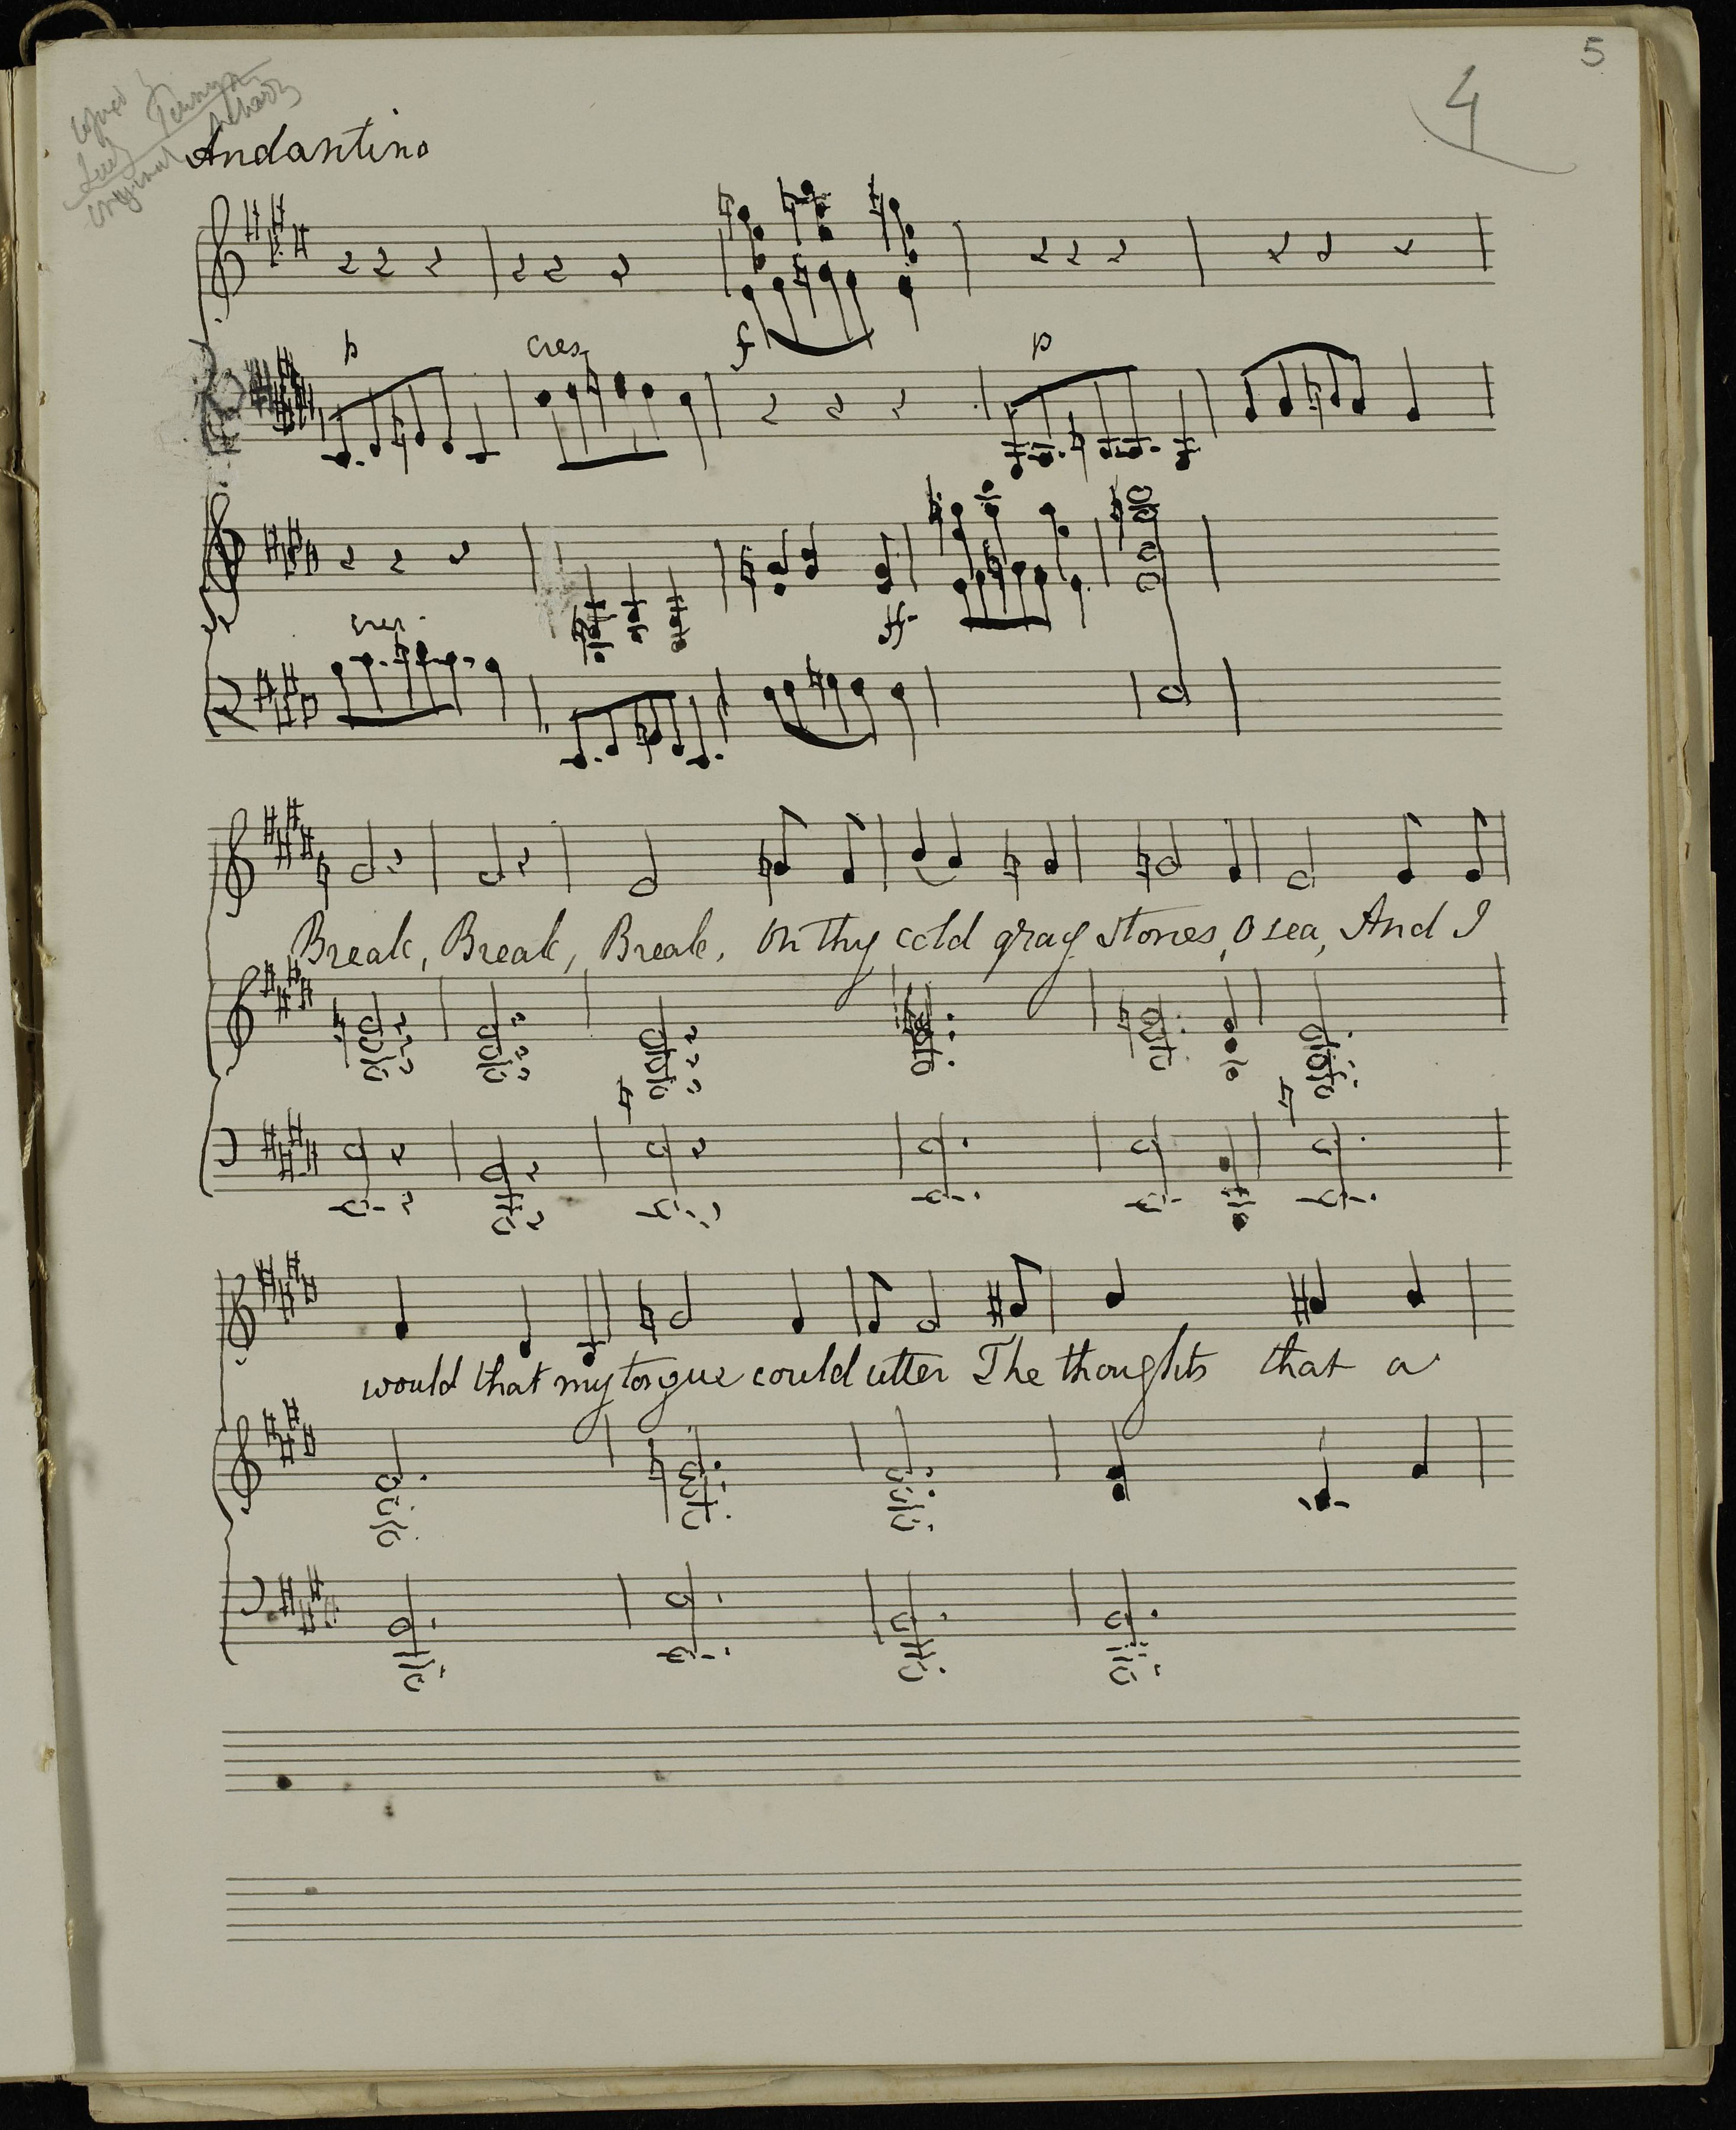 5
4
original
Andantino
p cres f p
cres. ff.
Break, Break, Break, On thy cold gray stones, O sea, And I
would that my tongue could utter The thoughts that a